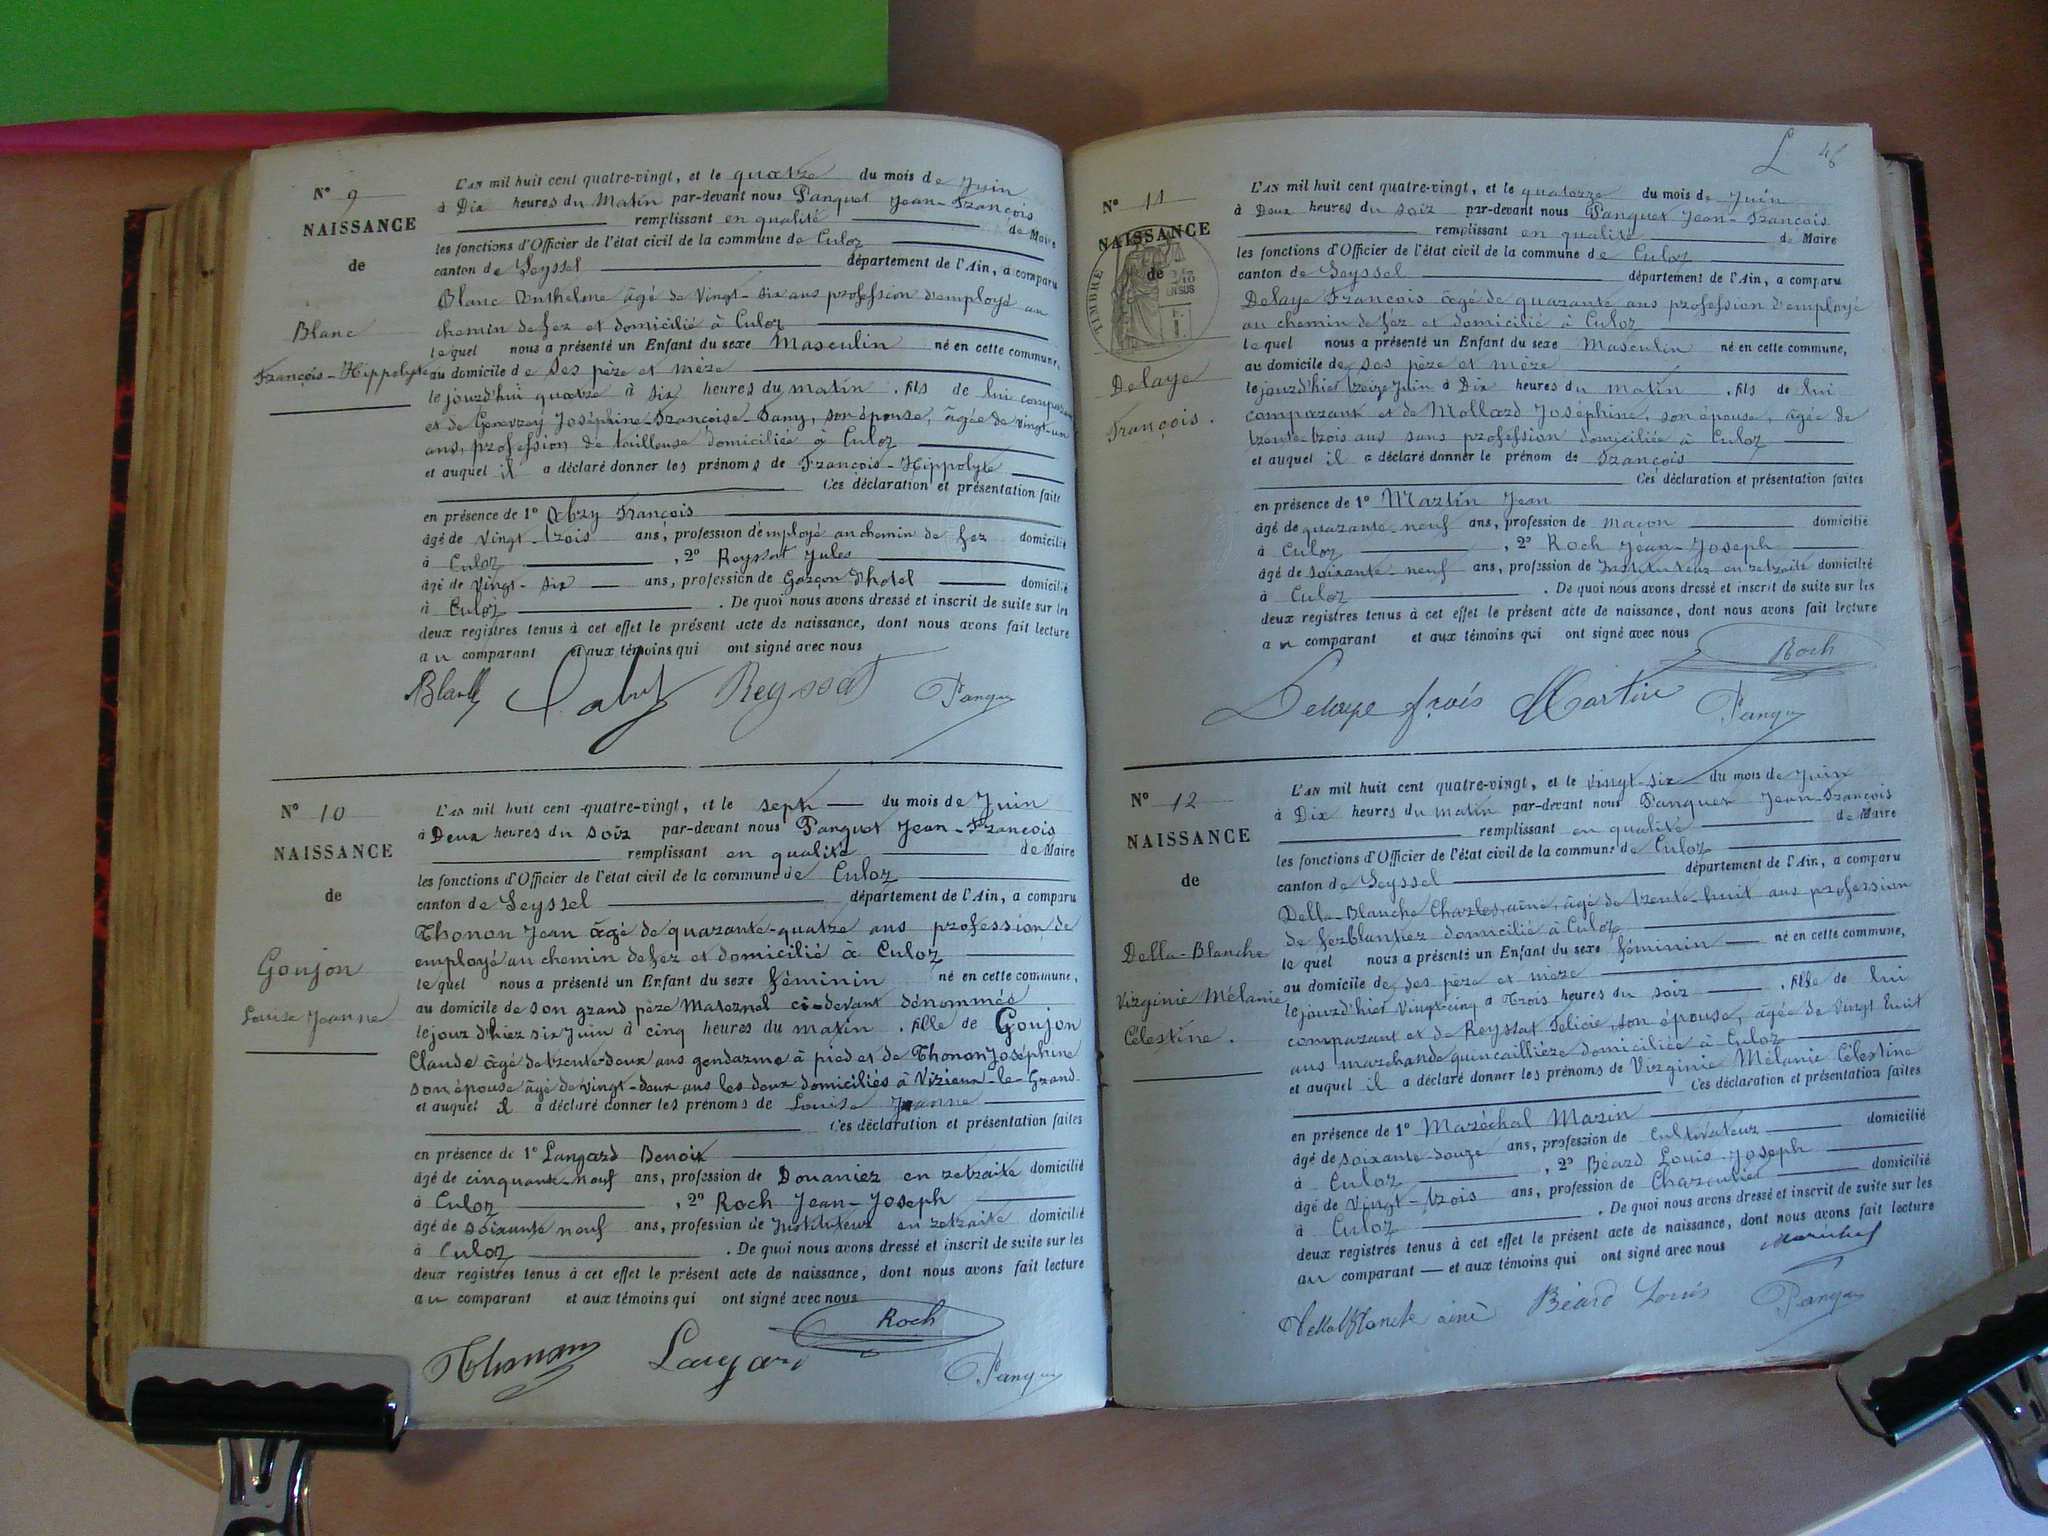 N° 9
NAISSANCE
de
Blanc
François-Hippolyte
L'AN mil huit cent quatre-vingt, et le quatre du mois de Juin
à Dix heures du Matin par-devant nous Panquet Jean-François
remplissant en qualité de Maire
les fonctions d'Officier de l'état civil de la commune de Culoz
canton de Seyssel département de l'Ain, a comparu
Blanc Anthelme âgé de vingt-six ans profession d'employé au
chemin de fer et domicilié à Culoz
lequel nous a présenté un Enfant du sexe Masculin né en cette commune,
au domicile de ses père et mère
le jourd'hui quatre à six heures du matin, fils de lui comparant
et de Genevrey Joséphine-Françoise-Fany, son épouse, âgée de vingt-un
ans, profession de tailleuse domiciliée à Culoz
et auquel il a déclaré donner les prénoms de François-Hippolyte
Ces déclaration et présentation faites
en présence de 1° Abry François
âgé de vingt-trois ans, profession d'employé au chemin de fer domicilié
à Culoz, 2° Reyssat Jules
âgé de vingt-six ans, profession de Garçon d'hotel domicilié
à Culoz. De quoi nous avons dressé et inscrit de suite sur les
deux registres tenus à cet effet le présent acte de naissance, dont nous avons fait lecture
au comparant et aux témoins qui ont signé avec nous
Blanc Reyssat Panquet
N° 10
NAISSANCE
de
Goujon
Louise Jeanne
L'AN mil huit cent quatre-vingt, et le sept du mois de Juin
à Deux heures du soir par-devant nous Panquet Jean-François
remplissant en qualité de Maire
les fonctions d'Officier de l'état civil de la commune de Culoz
canton de Seyssel département de l'Ain, a comparu
Thonon Jean âgé de quarante-quatre ans profession de
employé au chemin de fer et domicilié à Culoz
lequel nous a présenté un Enfant du sexe féminin né en cette commune,
au domicile de son grand père Maternel ci-devant dénommés
le jour d'hier six Juin à cinq heures du matin, fille de Goujon
Claude âgé de trente-deux ans gendarme à pied et de Thonon Joséphine
son épouse âgé de vingt-deux ans les deux domiciliés à Virieux-le-Grand
et auquel il a déclaré donner les prénoms de Louise Jeanne
Ces déclaration et présentation faites
en présence de 1° Langard Benoit
âgé de cinquante-neuf ans, profession de Douanier en retraite domicilié
à Culoz, 2° Roch Jean-Joseph
âgé de soixante neuf ans, profession de Instituteur en retraite domicilié
à Culoz. De quoi nous avons dressé et inscrit de suite sur les
deux registres tenus à cet effet le présent acte de naissance, dont nous avons fait lecture
au comparant et aux témoins qui ont signé avec nous
Roch
Thonon Langard Panquet
L 48
N° 11
NAISSANCE
de
TIMBRE
Delaye
François.
L'AN mil huit cent quatre-vingt, et le quatorze du mois de Juin
à Deux heures du soir par-devant nous Panquet Jean-François
remplissant en qualité de Maire
les fonctions d'Officier de l'état civil de la commune de Culoz
canton de Seyssel département de l'Ain, a comparu
Delaye François âgé de quarante ans profession d'employé
au chemin de fer et domicilié à Culoz
lequel nous a présenté un Enfant du sexe Masculin né en cette commune,
au domicile de ses père et mère
le jourd'hier treize Juin à Dix heures du matin, fils de lui
comparant et de Mollard Joséphine, son épouse, âgée de
trente-trois ans sans profession domiciliée à Culoz
et auquel il a déclaré donner le prénom de François
Ces déclaration et présentation faites
en présence de 1° Martin Jean
âgé de quarante-neuf ans, profession de maçon domicilié
à Culoz, 2° Roch Jean-Joseph
âgé de soixante-neuf ans, profession de Instituteur en retraite domicilié
à Culoz. De quoi nous avons dressé et inscrit de suite sur les
deux registres tenus à cet effet le présent acte de naissance, dont nous avons fait lecture
au comparant et aux témoins qui ont signé avec nous
Roch
Delaye frois Martin Panquet
N° 12
NAISSANCE
de
Della-Blanche
Virginie Mélanie
Célestine.
L'AN mil huit cent quatre-vingt, et le vingt-six du mois de Juin
à Dix heures du matin par-devant nous Panquet Jean-François
remplissant en qualité de Maire
les fonctions d'Officier de l'état civil de la commune de Culoz
canton de Seyssel département de l'Ain, a comparu
Della-Blanche Charles, aîné, âgé de trente-huit ans profession
de ferblantier domicilié à Culoz
lequel nous a présenté un Enfant du sexe féminin né en cette commune,
au domicile de ses père et mère
le jourd'hier vingt-cinq à Trois heures du soir, fille de lui
comparant et de Reyssat Félicie, son épouse, âgée de vingt huit
ans marchande quincaillière domiciliée à Culoz
et auquel il a déclaré donner les prénoms de Virginie Mélanie Célestine
Ces déclaration et présentation faites
en présence de 1° Maréchal Marin
âgé de soixante-douze ans, profession de Cultivateur domicilié
à Culoz, 2° Béard Louis-Joseph
âgé de vingt-trois ans, profession de Charcutier domicilié
à Culoz. De quoi nous avons dressé et inscrit de suite sur les
deux registres tenus à cet effet le présent acte de naissance, dont nous avons fait lecture
au comparant et aux témoins qui ont signé avec nous Maréchal
Dellablanche ainé Béard Louis Panquet